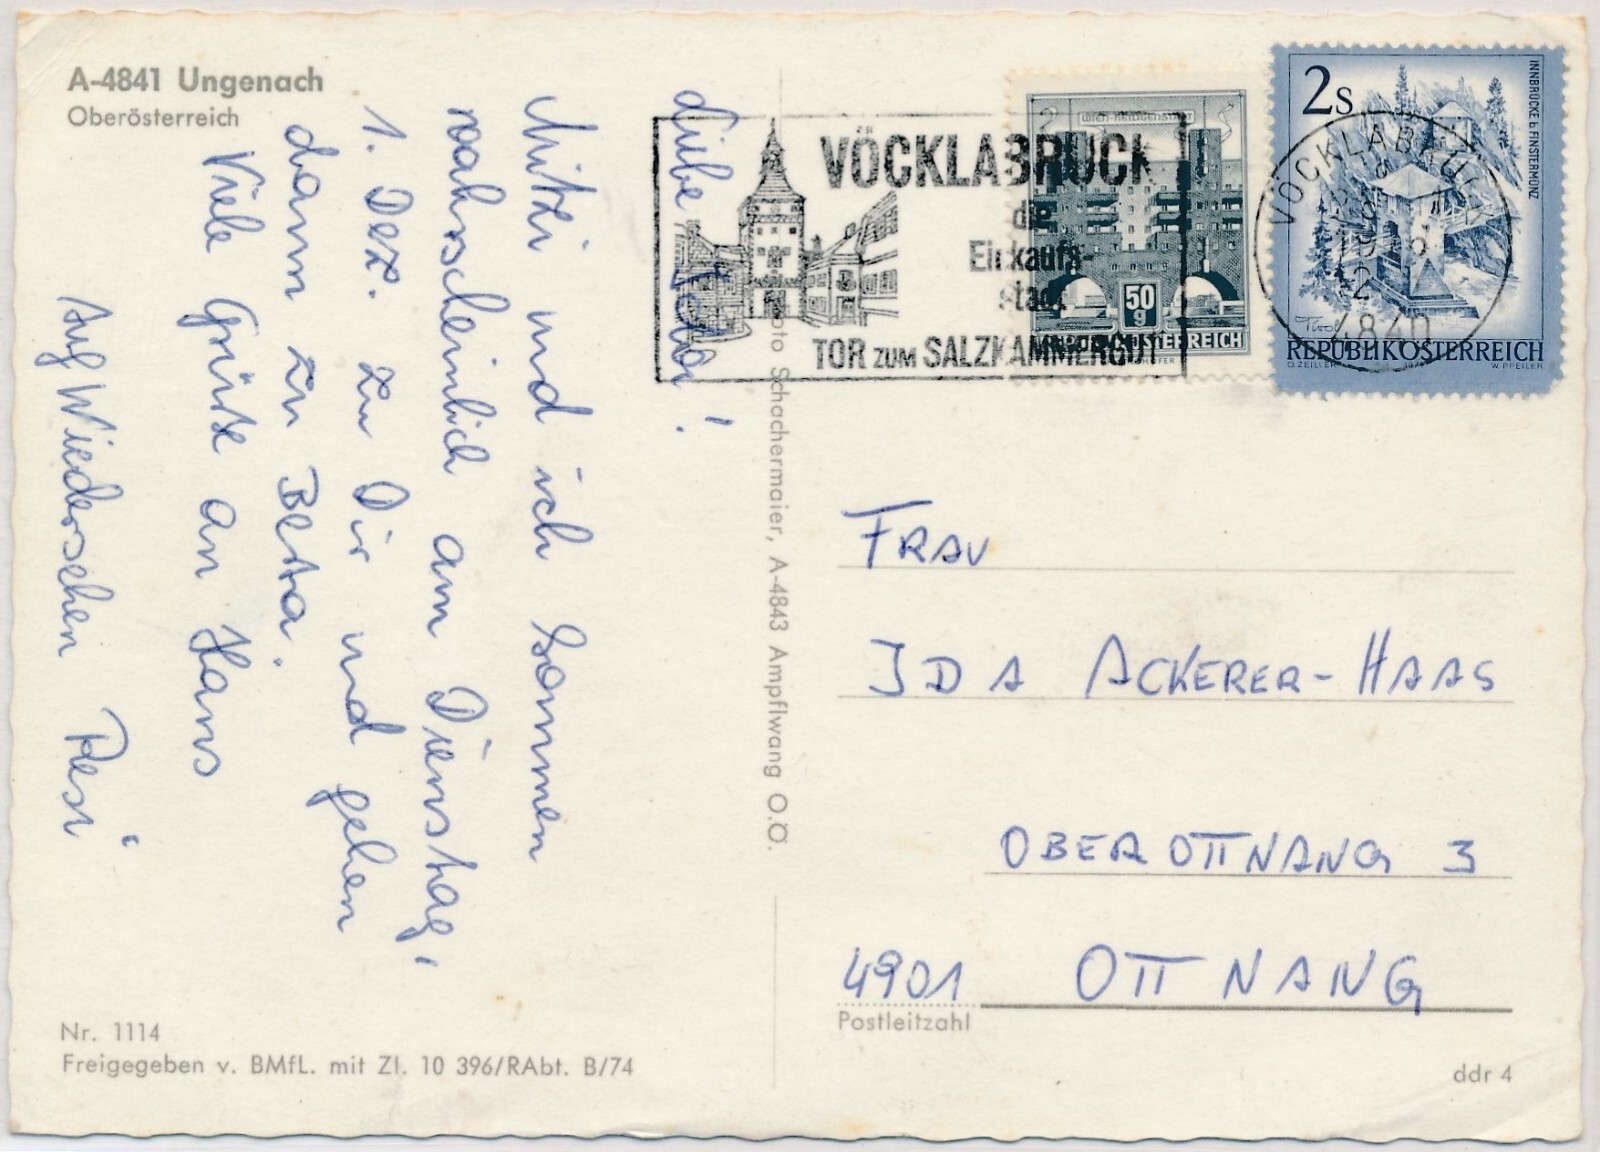 A-4841 Ungenach
Oberösterreich
Liebe
Mitzi und ich kommen
wahrscheinlich am Dienstag,
1. Dez. zu Dir und gehen
dann zu Berta.
Viele Grüße an Hans
Auf Wiedersehen Resi
Nr. 1114
Freigegeben v. BMfL. mit Zl. 10 396/RAbt. B/74
Foto Schachermaier, A-4843 Ampflwang O.Ö.
VÖCKLABRUCK
die
Einkaufs-
stadt
TOR ZUM SALZKAMMERGUT
WIEN-HEILIGENSTADT
50
g
REPUBLIK ÖSTERREICH
2S
INNBRÜCKE b. FINSTERMÜNZ
Tirol
REPUBLIK ÖSTERREICH
O. ZEILLER
W. PFEILER
VÖCKLABRUCK
4840
FRAU
IDA ACKERER-HAAS
OBEROTTNANG 3
4901 OTTNANG
Postleitzahl
ddr 4